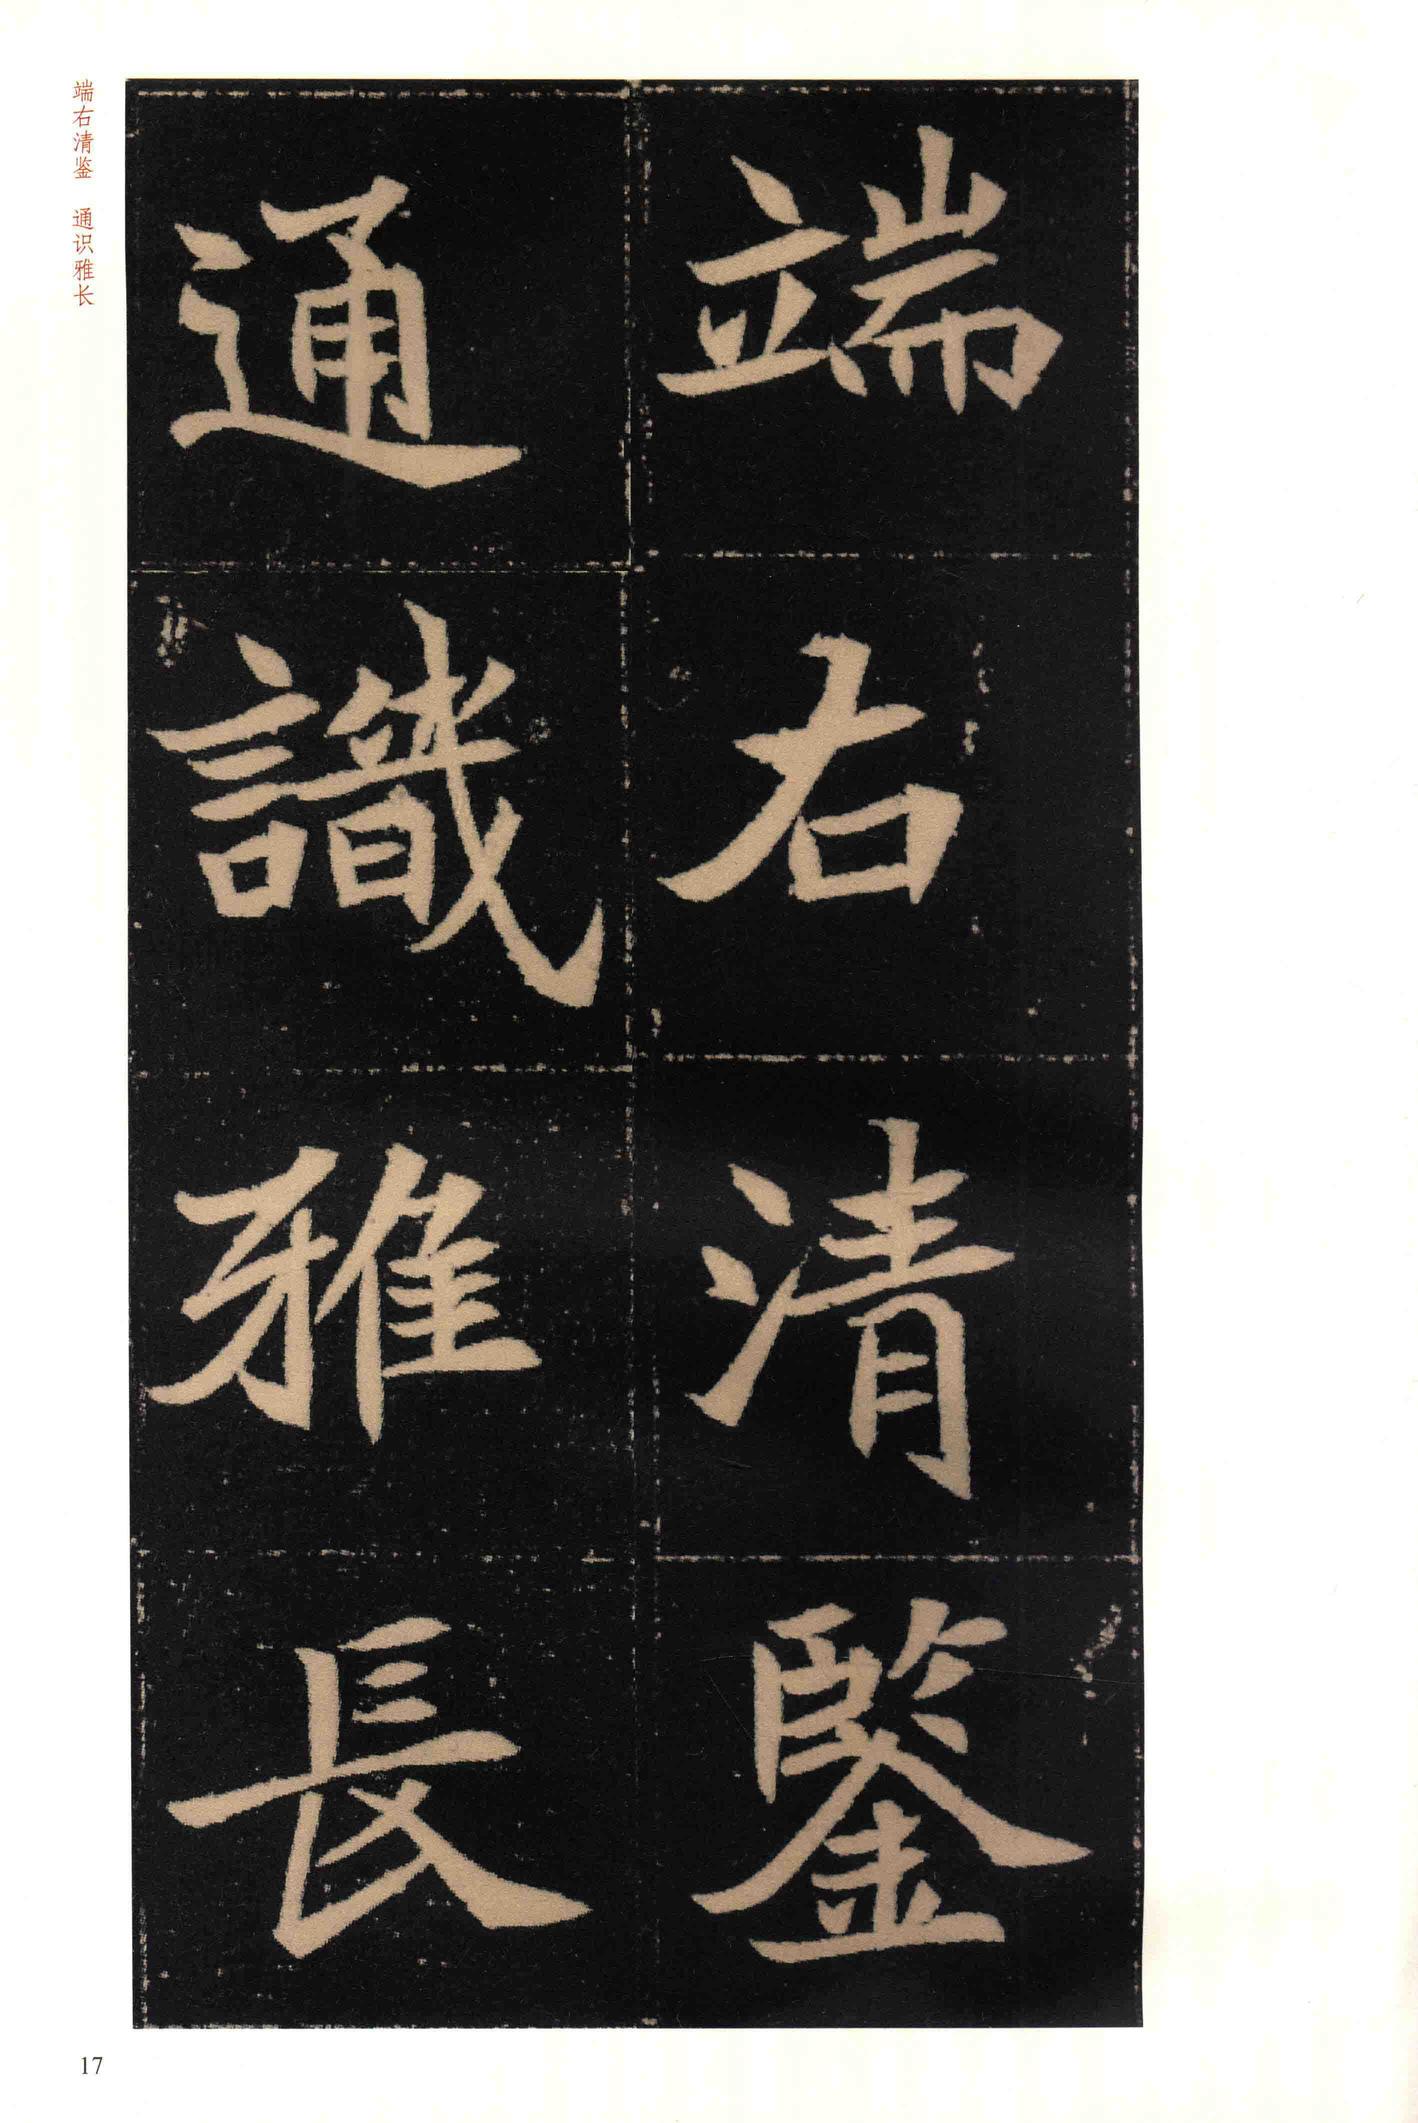 端右清鑒
通識雅長
端右清鉴　通识雅长
17